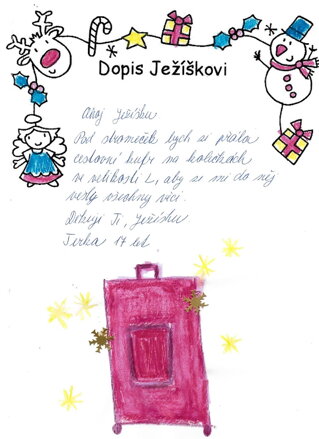 Dopis Ježíškovi
Ahoj Ježíšku
Pod stromeček bych si přála
cestovní kufr na kolečkách
ve velikosti L, aby se mi do něj
vešly všechny věci.
Děkuji Ti, Ježíšku
Terka 17 let